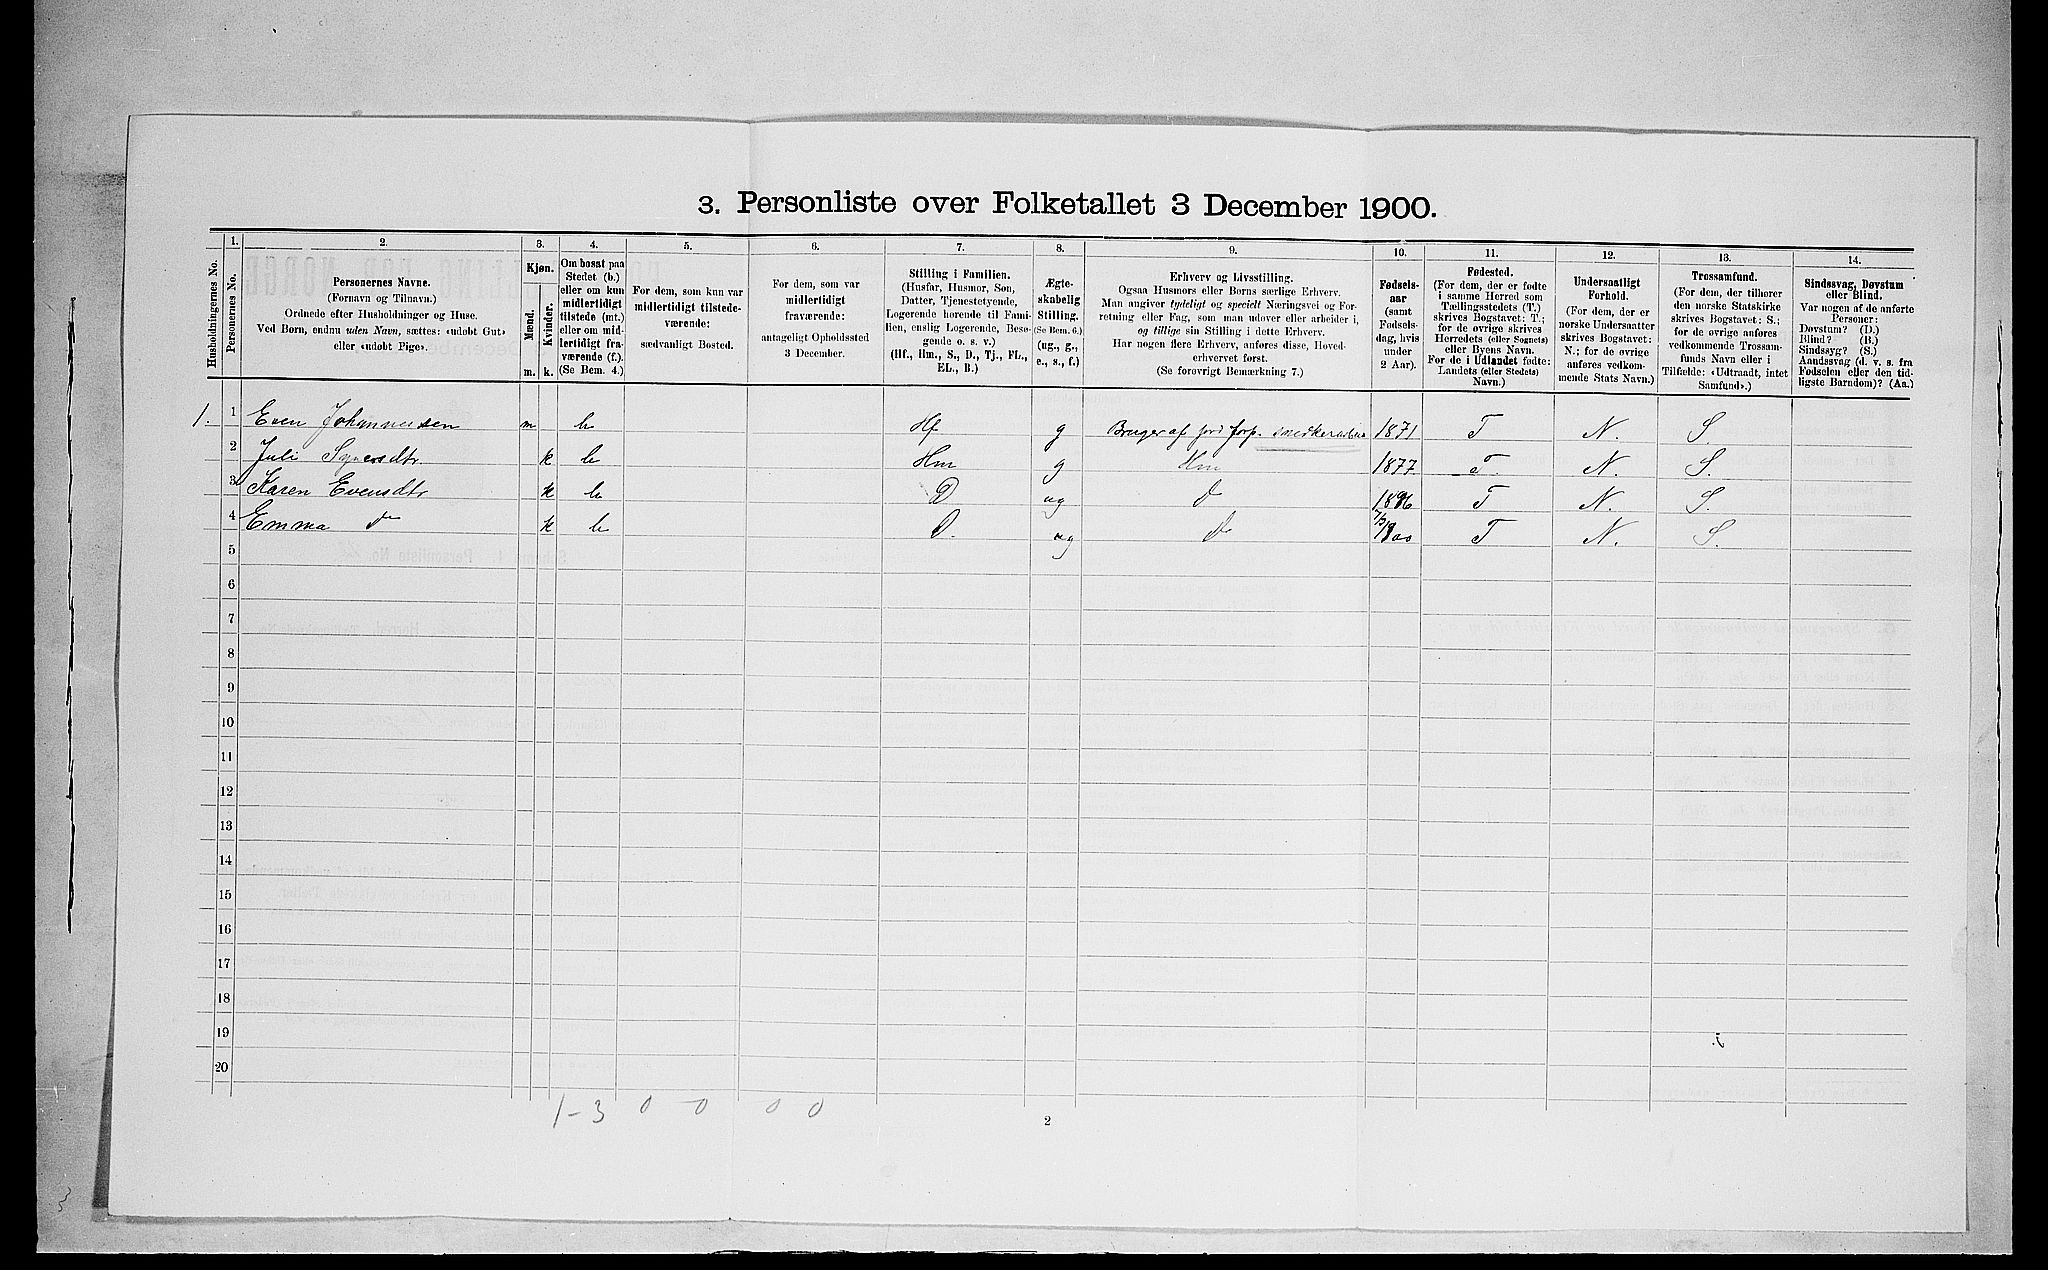 3. Personliste over Folketallet 3 December 1900.
Husholdningernes No.
1.
Personernes No.
2.
Personernes Navne.
(Fornavn og Tilnavn.)
Ordnede efter Husholdninger og Huse.
Ved Børn, endnu uden Navn, sættes: «udøbt Gut»
eller «udøbt Pige».
3.
Kjøn.
Mænd.
Kvinder.
m. k.
4.
Om bosat paa
Stedet (b.)
eller om kun
midlertidigt
tilstede (mt.)
eller om mid-
lertidigt fra-
værende (f.).
(Se Bem. 4.)
5.
For dem, som kun var
midlertidigt tilstede-
værende:
sædvanligt Bosted.
6.
For dem, som var
midlertidigt
fraværende:
antageligt Opholdssted
3 December.
7.
Stilling i Familien.
(Husfar, Husmor, Søn,
Datter, Tjenestetyende,
Logerende hørende til Fami-
lien, enslig Logerende, Besø-
gende o. s. v.)
(Hf., Hm., S., D., Tj., FL.,
EL., B.)
8.
Ægte-
skabelig
Stilling.
(Se Bem. 6.)
(ug., g.,
e., s., f.)
9.
Erhverv og Livsstilling.
Ogsaa Husmors eller Børns særlige Erhverv.
Man angiver tydeligt og specielt Næringsvei og For-
retning eller Fag, som man udøver eller arbeider i,
og tillige sin Stilling i dette Erhverv.
Har nogen flere Erhverv, anføres disse, Hoved-
erhvervet først.
(Se forøvrigt Bemærkning 7.)
10.
Fødsels-
aar
(samt
Fødsels-
dag, hvis
under
2 Aar).
11.
Fødested.
(For dem, der er fødte
i samme Herred som
Tællingsstedets (T.)
skrives Bogstavet: T.;
for de øvrige skrives
Herredets (eller Sognets)
eller Byens Navn.
For de i Udlandet fødte:
Landets (eller Stedets)
Navn.)
12.
Undersaatligt
Forhold.
(For dem, der er
norske Undersaatter
skrives Bogstavet:
N.; for de øvrige
anføres vedkom-
mende Stats Navn.)
13.
Trossamfund.
(For dem, der tilhører
den norske Statskirke
skrives Bogstavet: S.;
for de øvrige anføres
vedkommende Trossam-
funds Navn eller i
Tilfælde: «Udtraadt, intet
Samfund».)
14.
Sindssvag, Døvstum
eller Blind.
Var nogen af de anførte
Personer:
Døvstum? (D.)
Blind? (B.)
Sindssyg? (S.)
Aandssvag (d. v. s. fra
Fødselen eller den tid-
ligste Barndom)? (Aa.)
1. 1 Even Johannessen m b Hf g Bruger af jord forp. 1871 T N. S.
2 Juli k b Hm g Hm 1877 T. N. S.
3 Karen Evensdtr k b D ug d 1896 T N. S.
4 Emma do k b D. ug do 7/3 1900 T N. S.
5
6
7
8
9
10
11
12
13
14
15
16
17
18
19
20
1-3 0 0 0 0
2
3